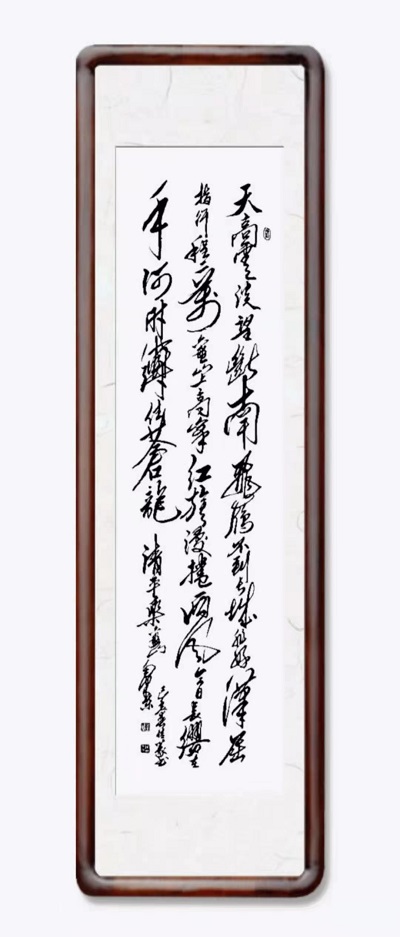 天高雲淡望斷南飛鴈不到长城非好漢屈
指行程二萬六盘山上高峰红旗漫捲西风今日長纓在
手何时縛住蒼龍
清平樂